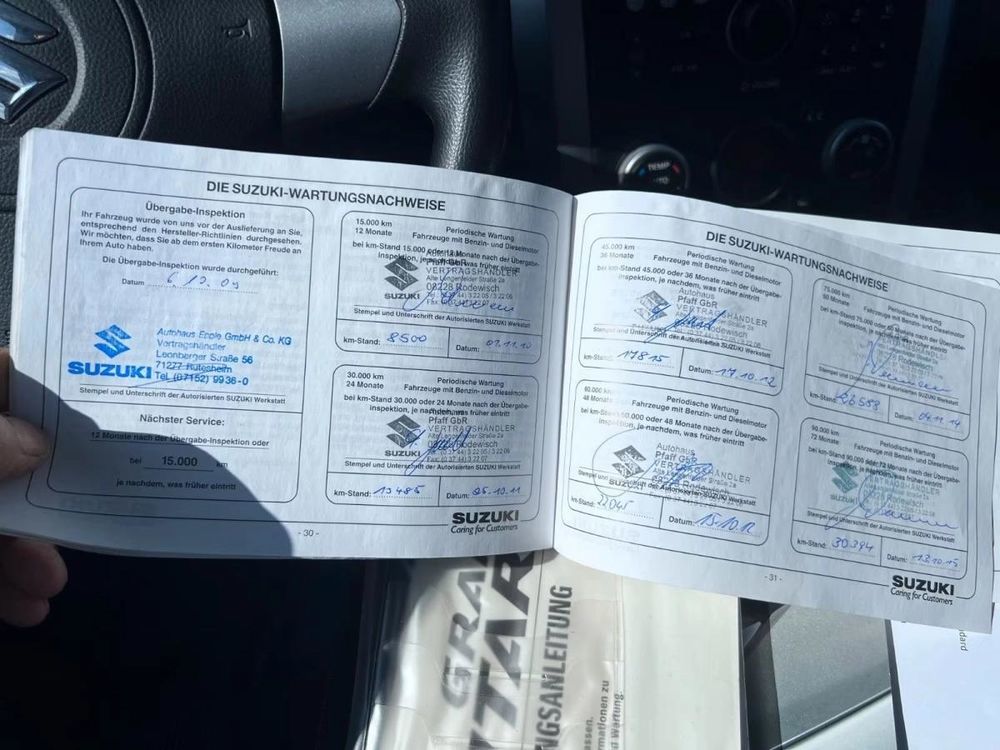 DIE SUZUKI-WARTUNGSNACHWEISE
Übergabe-Inspektion
Ihr Fahrzeug wurde von uns vor der Auslieferung an Sie,
entsprechend den Hersteller-Richtlinien durchgesehen.
Wir möchten, dass Sie ab dem ersten Kilometer Freude an
Ihrem Auto haben.
Die Übergabe-Inspektion wurde durchgeführt:
Datum
SUZUKI
Autohaus Epple GmbH & Co. KG
Vertragshändler
Leonberger Straße 56
71277 Rutesheim
Tel. (07152) 9936-0
Stempel und Unterschrift der Autorisierten SUZUKI Werkstatt
Nächster Service:
12 Monate nach der Übergabe-Inspektion oder
bei 15.000 km
je nachdem, was früher eintritt
15.000 km
12 Monate
Periodische Wartung
Fahrzeuge mit Benzin- und Dieselmotor
bei km-Stand 15.000 oder 12 Monate nach der Übergabe-
Inspektion, je nachdem, was früher eintritt
Pfaff GbR
VERTRAGSHÄNDLER
Alte Lengenfelder Straße 2a
08228 Rodewisch
SUZUKI
Stempel und Unterschrift der Autorisierten SUZUKI Werkstatt
km-Stand: 8500 Datum: 01.11.10
30.000 km
24 Monate
Periodische Wartung
Fahrzeuge mit Benzin- und Dieselmotor
bei km-Stand 30.000 oder 24 Monate nach der Übergabe-
Inspektion, je nachdem, was früher eintritt
Pfaff GbR
VERTRAGSHÄNDLER
SUZUKI
Stempel und Unterschrift der Autorisierten SUZUKI Werkstatt
km-Stand: 13485 Datum: 05.10.11
- 30 -
SUZUKI
Caring for Customers
DIE SUZUKI-WARTUNGSNACHWEISE
45.000 km
36 Monate
Periodische Wartung
Fahrzeuge mit Benzin- und Dieselmotor
bei km-Stand 45.000 oder 36 Monate nach der Übergabe-
Inspektion, je nachdem, was früher eintritt
Autohaus
Pfaff GbR
VERTRAGSHÄNDLER
Stempel und Unterschrift der Autorisierten SUZUKI Werkstatt
km-Stand: 17815 Datum: 17.10.12
60.000 km
48 Monate
Periodische Wartung
Fahrzeuge mit Benzin- und Dieselmotor
bei km-Stand 60.000 oder 48 Monate nach der Übergabe-
Inspektion, je nachdem, was früher eintritt
Autohaus
Pfaff GbR
VERTRAGSHÄNDLER
SUZUKI
Stempel und Unterschrift der Autorisierten SUZUKI Werkstatt
km-Stand: 22045 Datum:
75.000 km
60 Monate
Periodische Wartung
Fahrzeuge mit Benzin- und Dieselmotor
Stempel und Unterschrift der Autorisierten SUZUKI Werkstatt
km-Stand: 26558 Datum: 04.11.14
90.000 km
72 Monate
Periodische Wartung
Fahrzeuge mit Benzin- und Dieselmotor
bei km-Stand 90.000 oder 72 Monate nach der Übergabe-
Inspektion, je nachdem, was früher eintritt
Stempel und Unterschrift der Autorisierten SUZUKI Werkstatt
km-Stand: 30394 Datum: 13.10.15
- 31 -
SUZUKI
Caring for Customers
TEMP